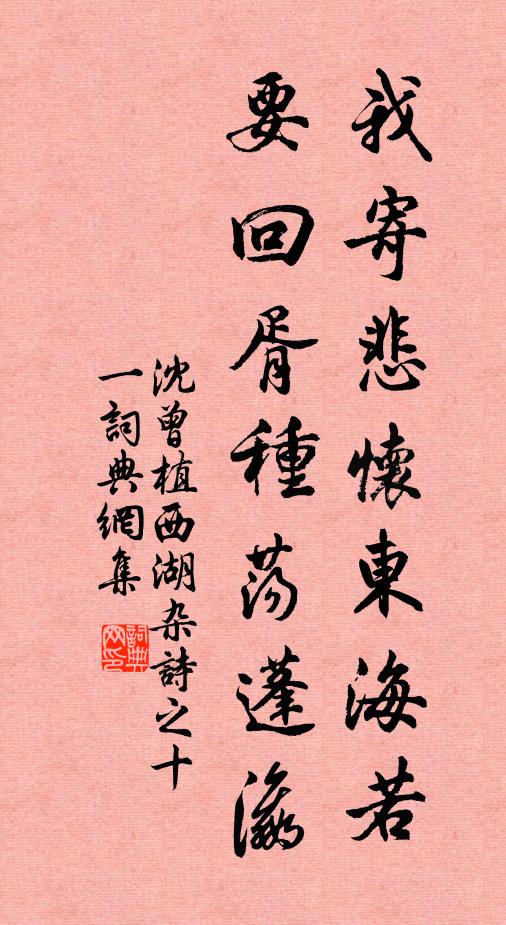 我寄悲懷東海若
要回胥種荡蓬瀛
沈曾植西湖杂詩之十
一詞典網集
詞典网印